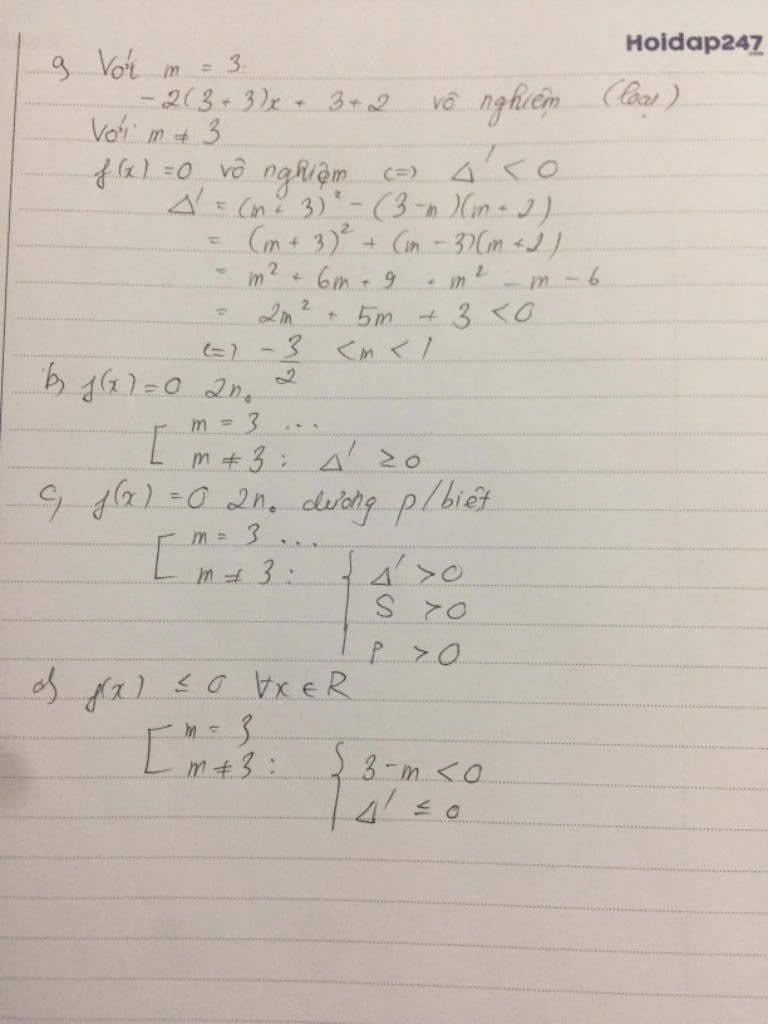 Hoidap247
a, Với m = 3:
-2(3+3)x + 3+2 vô nghiệm (loại)
Với m ≠ 3
f(x) = 0 vô nghiệm <=> Δ' < 0
Δ' = (m+3)² - (3-m)(m+2)
= (m+3)² + (m-3)(m+2)
= m² + 6m + 9 + m² - m - 6
= 2m² + 5m + 3 < 0
<=> -3/2 < m < 1
b, f(x) = 0 2n₀
[ m = 3 ...
m ≠ 3 : Δ' ≥ 0
c, f(x) = 0 2n₀ dương p/biết
[ m = 3 ...
m ≠ 3 : { Δ' > 0
S > 0
P > 0
d, f(x) ≤ 0 ∀x ∈ R
[ m = 3
m ≠ 3 : { 3-m < 0
Δ' ≤ 0